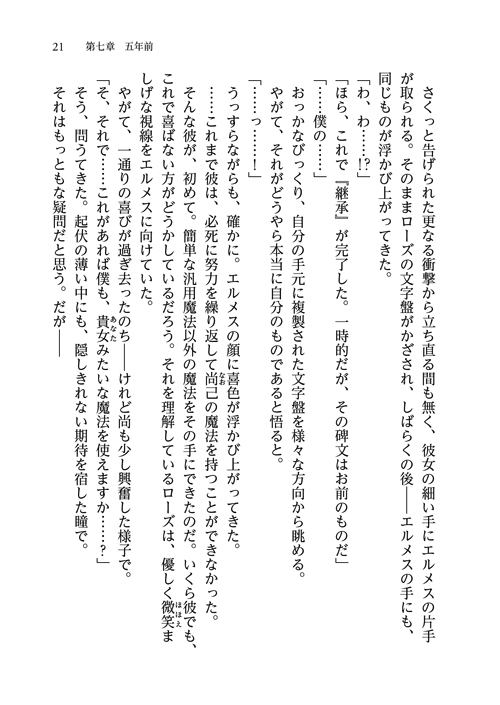 21　第七章　五年前
さくっと告げられた更なる衝撃から立ち直る間も無く、彼女の細い手にエルメスの片手
が取られる。そのままローズの文字盤がかざされ、しばらくの後――エルメスの手にも、
同じものが浮かび上がってきた。
「わ、わ……!?」
「ほら、これで『継承』が完了した。一時的だが、その碑文はお前のものだ」
「……僕の……」
おっかなびっくり、自分の手元に複製された文字盤を様々な方向から眺める。
やがて、それがどうやら本当に自分のものであると悟ると。
「……っ……！」
うっすらながらも、確かに。エルメスの顔に喜色が浮かび上がってきた。
……これまで彼は、必死に努力を繰り返して尚己の魔法を持つことができなかった。
そんな彼が、初めて。簡単な汎用魔法以外の魔法をその手にできたのだ。いくら彼でも、
これで喜ばない方がどうかしているだろう。それを理解しているローズは、優しく微笑ま
しげな視線をエルメスに向けていた。
やがて、一通りの喜びが過ぎ去ったのち――けれど尚も少し興奮した様子で。
「そ、それで……これがあれば僕も、貴女みたいな魔法を使えますか……？」
そう、問うてきた。起伏の薄い中にも、隠しきれない期待を宿した瞳で。
それはもっともな疑問だと思う。だが――